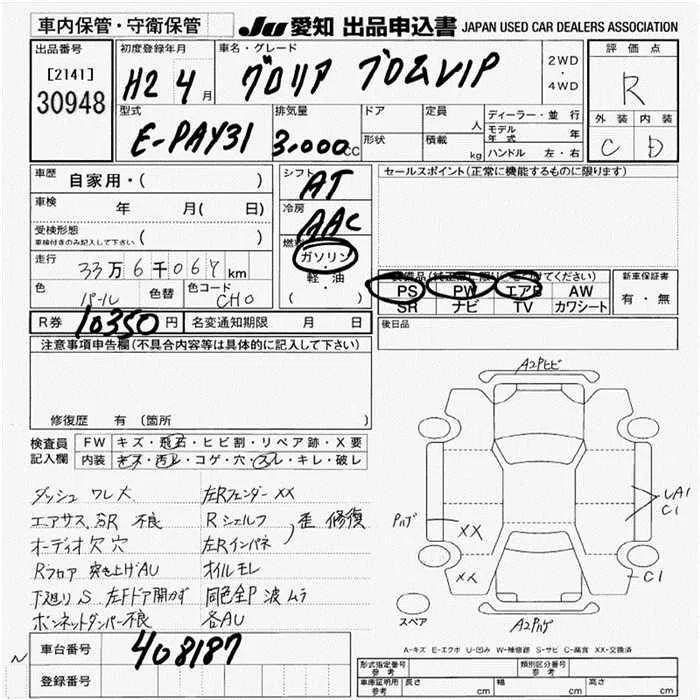 車内保管・守衛保管
JU 愛知 出品申込書 JAPAN USED CAR DEALERS ASSOCIATION
出品番号
[2141]
30948
初度登録年月
H2 4月
車名・グレード
グロリア ブロムVIP
2WD
・
4WD
評価点
R
外装 内装
C D
型式
E-PAY31
排気量
3.000cc
ドア
形状
定員
人
積載
kg
ディーラー・並行
モデル年式 年
ハンドル 左・右
車歴
自家用・( )
車検
年 月( 日)
受検形態
車検付きのみ記入して下さい ( )
走行
33万6千067km
色
パール
色替
色コード
CHO
シフト
AT
冷房
AAC
燃料
ガソリン・
軽・油
( )
セールスポイント(正常に機能するものに限ります)
PS PW エアB AW
SR ナビ TV カワシート
新車保証書
有・無
R券 10350円
名変通知期限 月 日
後日品
注意事項申告欄(不具合内容等は具体的に記入して下さい)
修復歴 有 (箇所 )
検査員
記入欄
FW キズ・飛石・ヒビ割・リペア跡・X要
内装 キズ・汚レ・コゲ・穴・スレ・キレ・破レ
ダッシュ ワレ大 左Rフェンダー XX
エアサス 不良 Rシェルフ
左Rインパネ 歪 修復
オーディオ欠 穴
Rフロア 突き上げAU オイルモレ
下廻りS 左Fドア開かず 同色全P 波 ムラ
ボンネットダンパー不良 各AU
車台番号 408187
登録番号
A2Pヒビ
Pハゲ
XX
XX
LA1
C1
C1
A2Pハゲ
スペア
A-キズ E-エクボ U-凹み W-補修跡 S-サビ C-腐食 XX-交換済
形式指定番号
参考
類別区分番号
参考
車庫証明用
参考
長さ cm 幅 cm 高さ cm